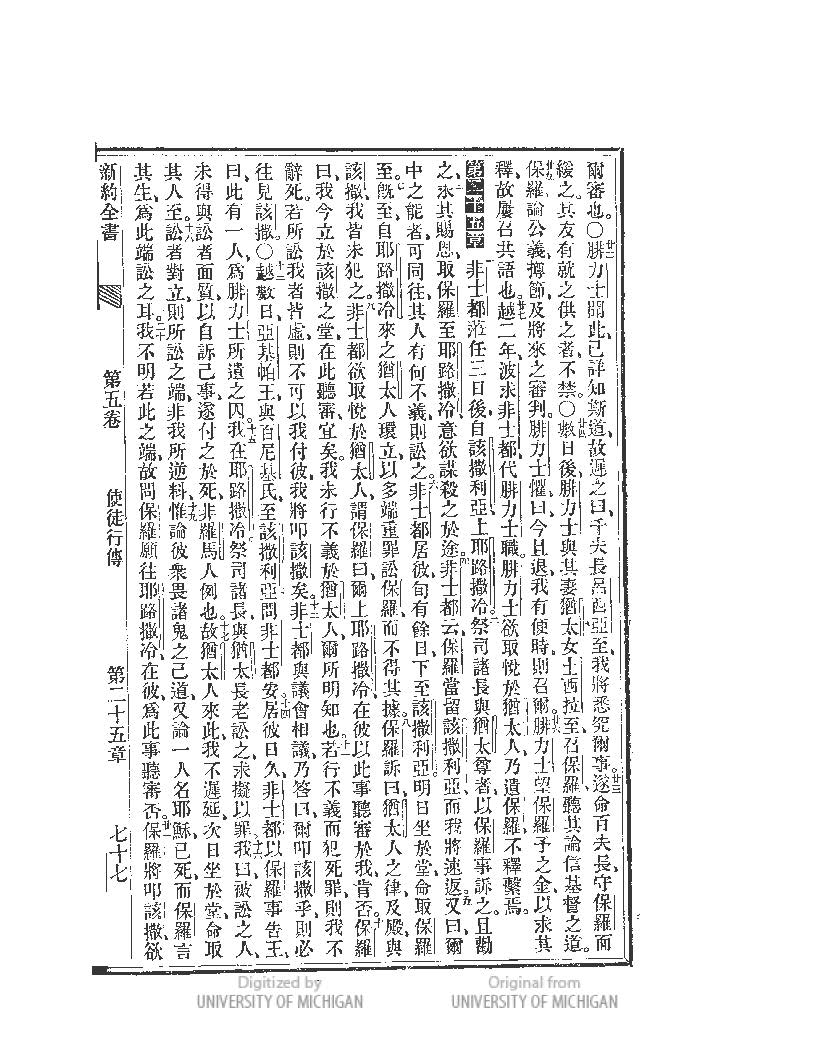 爾審也。〇廿二腓力士聞此、已詳知斯道、故遲之曰、千夫長呂西亞至、我將悉究爾事。廿三遂命百夫長、守保羅而
緩之。其友有就之供之者、不禁。〇廿四數日後、腓力士與其妻猶太女士西拉至、召保羅、聽其論信基督之道。
廿五保羅論公義、撙節、及將來之審判。腓力士懼、曰、今且退、我有便時、則召爾。廿六腓力士望保羅予之金、以求其
釋、故屢召共語也。廿七越二年、波求非士都代腓力士職。腓力士欲取悅於猶太人、乃遺保羅不釋繫焉。
第二十五章 一非士都蒞任三日後、自該撒利亞上耶路撒冷。二祭司諸長與猶太尊者、以保羅事訴之、且勸
之、三求其賜恩、取保羅至耶路撒冷、意欲謀殺之於途。四非士都云、保羅當留該撒利亞、而我將速返。五又曰、爾
中之能者、可同往、其人有何不義、則訟之。六非士都居彼旬有餘日、下至該撒利亞、明日坐於堂、命取保羅
至。七既至、自耶路撒冷來之猶太人環立、以多端重罪訟保羅、而不得其據。八保羅訴曰、猶太人之律、及殿、與
該撒、我皆未犯之。九非士都欲取悅於猶太人、謂保羅曰、爾上耶路撒冷、在彼以此事聽審於我、肯否。十保羅
曰、我今立於該撒之堂、在此聽審、宜矣。我未行不義於猶太人、爾所明知也。十一若行不義而犯死罪、則我不
辭死。若所訟我者皆虛、則不可以我付彼、我將叩該撒矣。十二非士都與議會相議、乃答曰、爾叩該撒乎、則必
往見該撒。〇十三越數日、亞基帕王、與百尼基氏、至該撒利亞、問非士都安。十四居彼日久、非士都以保羅事告王、
曰、此有一人、爲腓力士所遺之囚、十五我在耶路撒冷、祭司諸長、與猶太長老訟之、求擬以罪、十六我曰、被訟之人、
未得與訟者面質、以自訴己事、遂付之於死、非羅馬人例也。十七故猶太人來此、我不遲延、次日坐於堂、命取
其人至。十八訟者對立、則所訟之端、非我所逆料、十九惟論彼衆畏諸鬼之己道、又論一人名耶穌、已死、而保羅言
其生、爲此端訟之耳。二十我不明若此之端、故問保羅願往耶路撒冷、在彼爲此事聽審否。廿一保羅將叩該撒、欲
新約全書 第五卷 使徒行傳 第二十五章 七十七
Digitized by
UNIVERSITY OF MICHIGAN
Original from
UNIVERSITY OF MICHIGAN